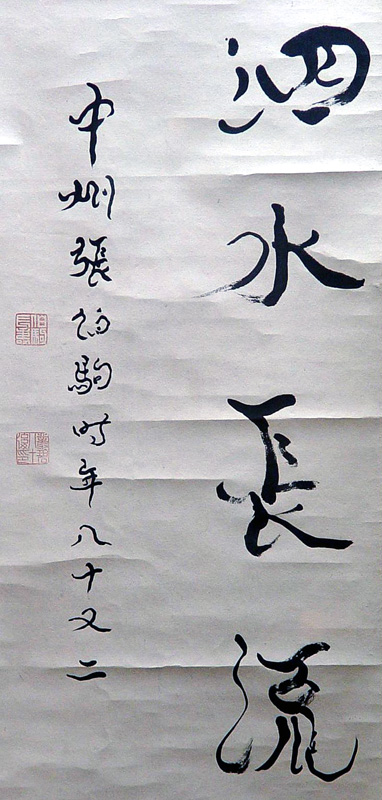 泗水長流
中州張伯駒時年八十又二